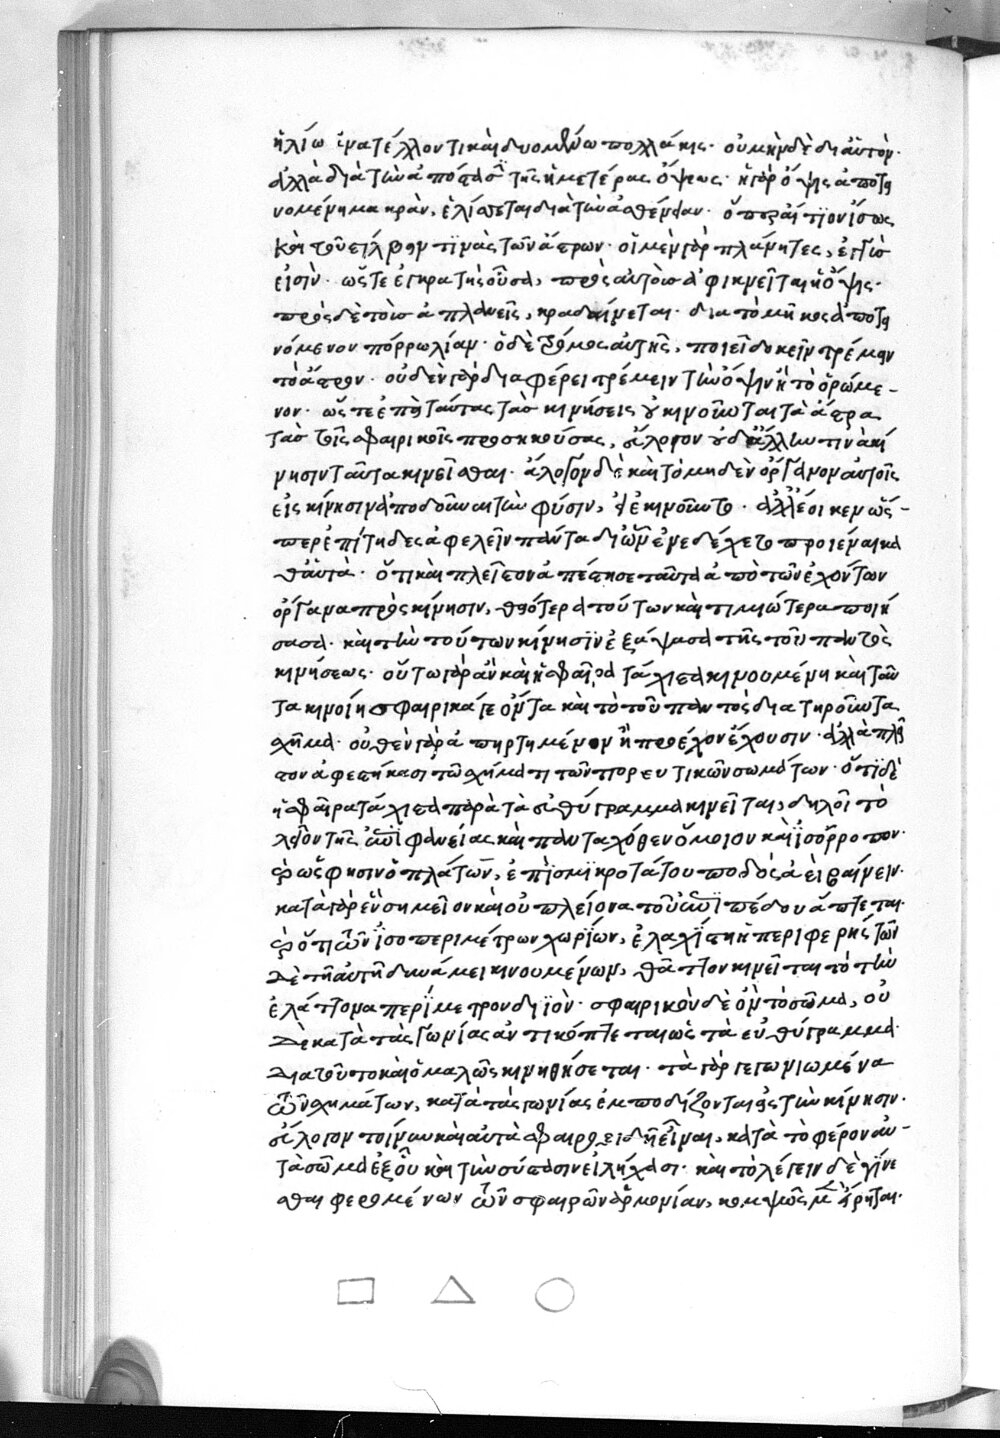 ἡλίω ἀνατέλλοντι καὶ δυομένω πολλάκις· οὐ μὴν δὲ δι αὐτὸν·
ἀλλὰ διὰ τὴν ἀπόστασιν τῆς ἡμετέρας ὄψεως· ἡ γὰρ ὄψις ἀποτει
νομένη μακρὰν, ἑλίσσεται διὰ τὴν ἀσθένειαν· ὅπερ αἴτιον ἴσως
καὶ τοῦ στίλβειν τινὰς τῶν ἀστέρων· οἱ μὲν γὰρ πλάνητες, ἐγγύς
εἰσὶν· ὥστε ἐγκρατὴς οὖσα, πρὸς αὐτοὺς ἀφικνεῖται ἡ ὄψις·
πρὸς δὲ τοὺς ἀπλανεῖς, κραδαίνεται· διὰ τὸ μῆκος ἀποτει
νόμενον πόρρω λίαν· ὁ δὲ τρόμος αὐτῆς, ποιεῖ δοκεῖν τρέμειν
τὸ ἄστρον· οὐδὲν γὰρ διαφέρει τρέμειν τὴν ὄψιν ἢ τὸ ὁρώμε-
νον· ὥστε ἐπὶ ταύτας τὰς κινήσεις οὐ κινοῦνται τὰ ἄστρα
τὰς τοῖς σφαιρικοῖς προσηκούσας, εὔλογον οὐδ ἄλλην τινὰ κί
νησιν ταῦτα κινεῖσθαι· ἄλογον δὲ καὶ τὸ μηδὲν ὄργανον αὐτοῖς
εἰς κίνησιν ἀποδοῦναι τὴν φύσιν, εἰ ἐκινοῦντο· ἀλλ ἔοικεν ὥσ-
περ ἐπίτηδες ἀφελεῖν πάντα δι ὧν ἐνεδέχετο προϊέναι κα
θ αὑτὰ· ὅτι καὶ πλεῖστον ἀπέστησε ταῦτα ἀπὸ τῶν ἐχόντων
ὄργανα πρὸς κίνησιν, θειότερα τούτων καὶ τιμιώτερα ποιή
σασα· καὶ τὴν τούτων κίνησιν ἐξάψασα τῆς τοῦ παντὸς
κινήσεως· οὕτω γὰρ ἂν καὶ ἡ σφαῖρα τάχιστα κινουμένη καὶ ταῦ
τα κινοίη σφαιρικά τε ὄντα καὶ τὸ τοῦ παντὸς διατηροῦντα
σχῆμα· οὐθὲν γὰρ ἀπηρτημένον ἢ προέχον ἔχουσιν· ἀλλὰ πλεῖ
στον ἀφεστήκασι τῶ σχήματι τῶν πορευτικῶν σωμάτων· ὅτι δὲ
ἡ σφαῖρα τάχιστα παρὰ τὰ εὐθύγραμμα κινεῖται, δηλοῖ τὸ
λεῖον τῆς ἐπιφανείας καὶ πανταχόθεν ὅμοιον καὶ ἰσόρροπον·
καὶ ὥς φησιν ὁ πλάτων, ἐπὶ σμικροτάτου ποδὸς ἀεὶ βαίνειν·
κατὰ γὰρ ἓν σημεῖον καὶ οὐ πλείονα τοῦ ἐπιπέδου ἅπτεται·
καὶ ὅτι τῶν ἰσοπεριμέτρων χωρίων, ἐλαχίστη ἡ περιφερής τῶν
δὲ τῆ αὐτῆ δυνάμει κινουμένων, θᾶττον κινεῖται τὸ τὴν
ἐλάττονα περίμετρον διϊὸν· σφαιρικὸν δὲ ὂν τὸ σῶμα, οὐ
δὲ κατὰ τὰς γωνίας ἀντικόπτεται ὡς τὰ εὐθύγραμμα·
διὰ τοῦτο καὶ ὁμαλῶς κινηθήσεται· τὰ γὰρ γεγωνιωμένα
τῶν σχημάτων, κατὰ τὰς γωνίας ἐμποδίζονται εἰς τὴν κίνησιν·
εὔλογον τοίνυν καὶ αὐτὰ σφαιροειδῆ εἶναι, κατὰ τὸ φέρον αὐ-
τὰ σῶμα ἐξ οὗ καὶ τὴν σύστασιν εἰλήχασι· καὶ τὸ λέγειν δὲ γίνε
σθαι φερομένων τῶν σφαιρῶν ἁρμονίαν, κομψῶς μὲν εἴρηται·